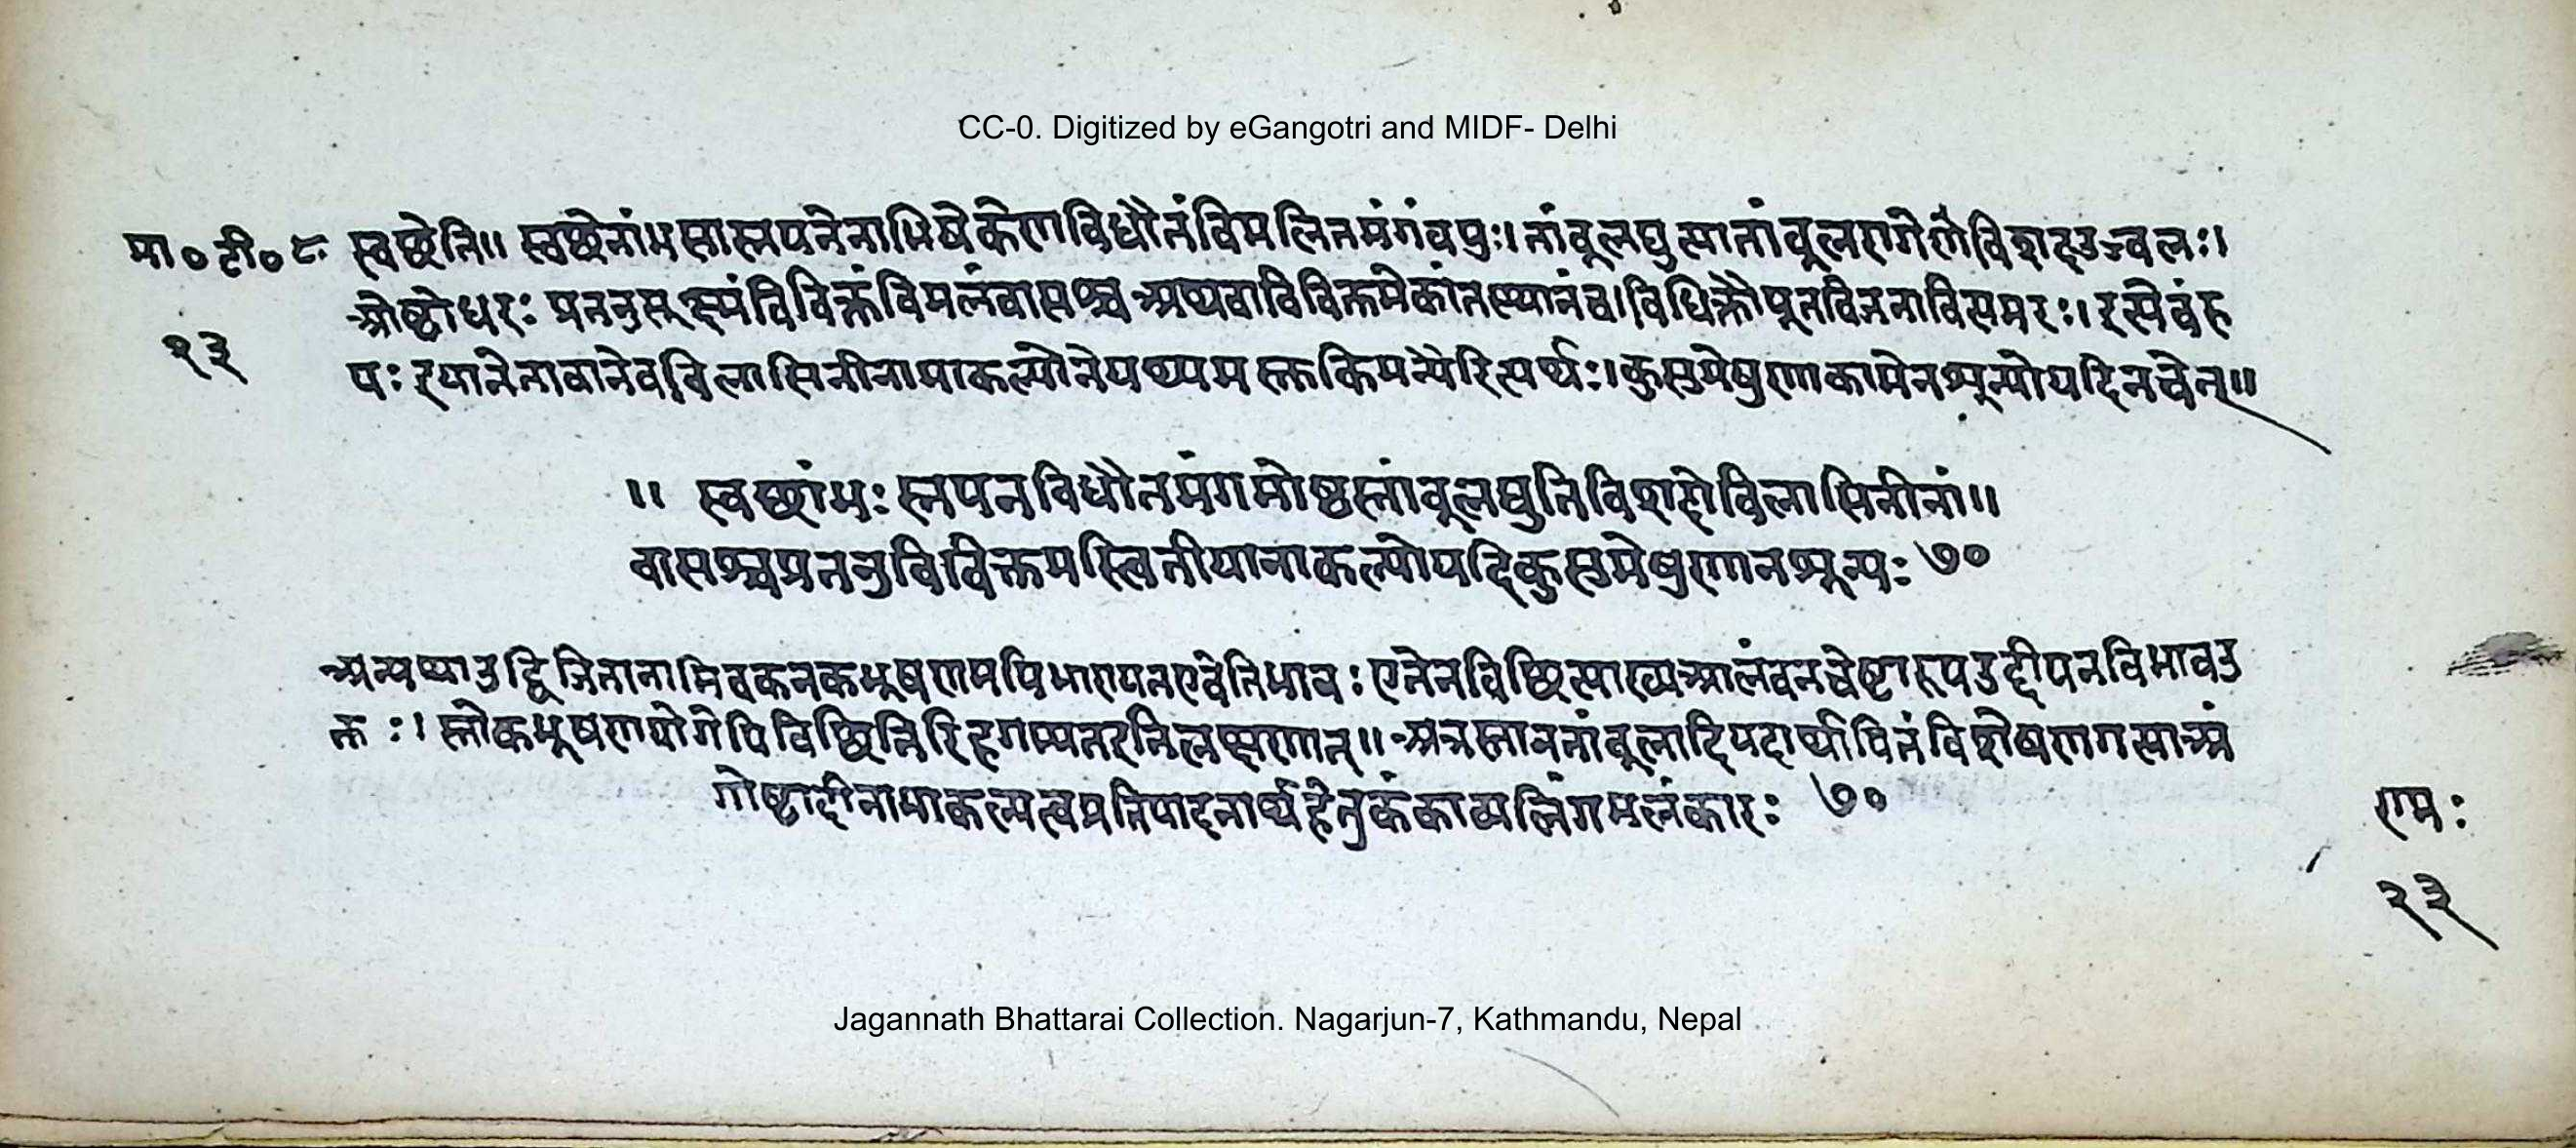 CC-0. Digitized by eGangotri and MIDF- Delhi
मा०टी०८ स्वछेति॥ स्वछेनांभसास्नपनेनाभिषेकेणविधौतंविमलितमंगंवपुः। तांबूलद्युत्यातांबूलरागेणैवविशदउज्वलः।
१३ ओष्टोधरः प्रतनुसूक्ष्मंविविक्तंविमलंवासश्च अथवाविविक्तमेकांतस्थानंच।विविक्तौपूतविजनावित्यमरः। इत्येवंरू
पः इयानेतावानेवविलासिनीनामाकल्पोनेपथ्यमस्तुकिमन्यैरित्यर्थः।कुसुमेषुणाकामेनशून्योयदिनचेत्॥
॥ स्वछांभः स्नपनविधौतमंगमोष्ठस्तांबूलद्युतिविशदोविलासिनीनां॥
वासश्चप्रतनुविविक्तमस्त्वितीयानाकल्पोयदिकुसुमेषुणानशून्यः ७०
अन्यथाउद्विजितानामिवकनकभूषणमपिभारायतएवेतिभावः एतेनविछित्त्याख्यआलंबनचेष्टारूपउद्दीपनविभावउ
क्तः। स्तोकभूषणयोगेपिविछित्तिरिहगम्यतइतिलक्षणात्॥ अत्रस्नानतांबूलादिपदार्थापितंविशेषणगत्याअं
गोष्टादीनामाकल्पत्वप्रतिपादनार्थहेतुकंकाव्यलिंगमलंकारः ७०
रामः
२३
Jagannath Bhattarai Collection. Nagarjun-7, Kathmandu, Nepal